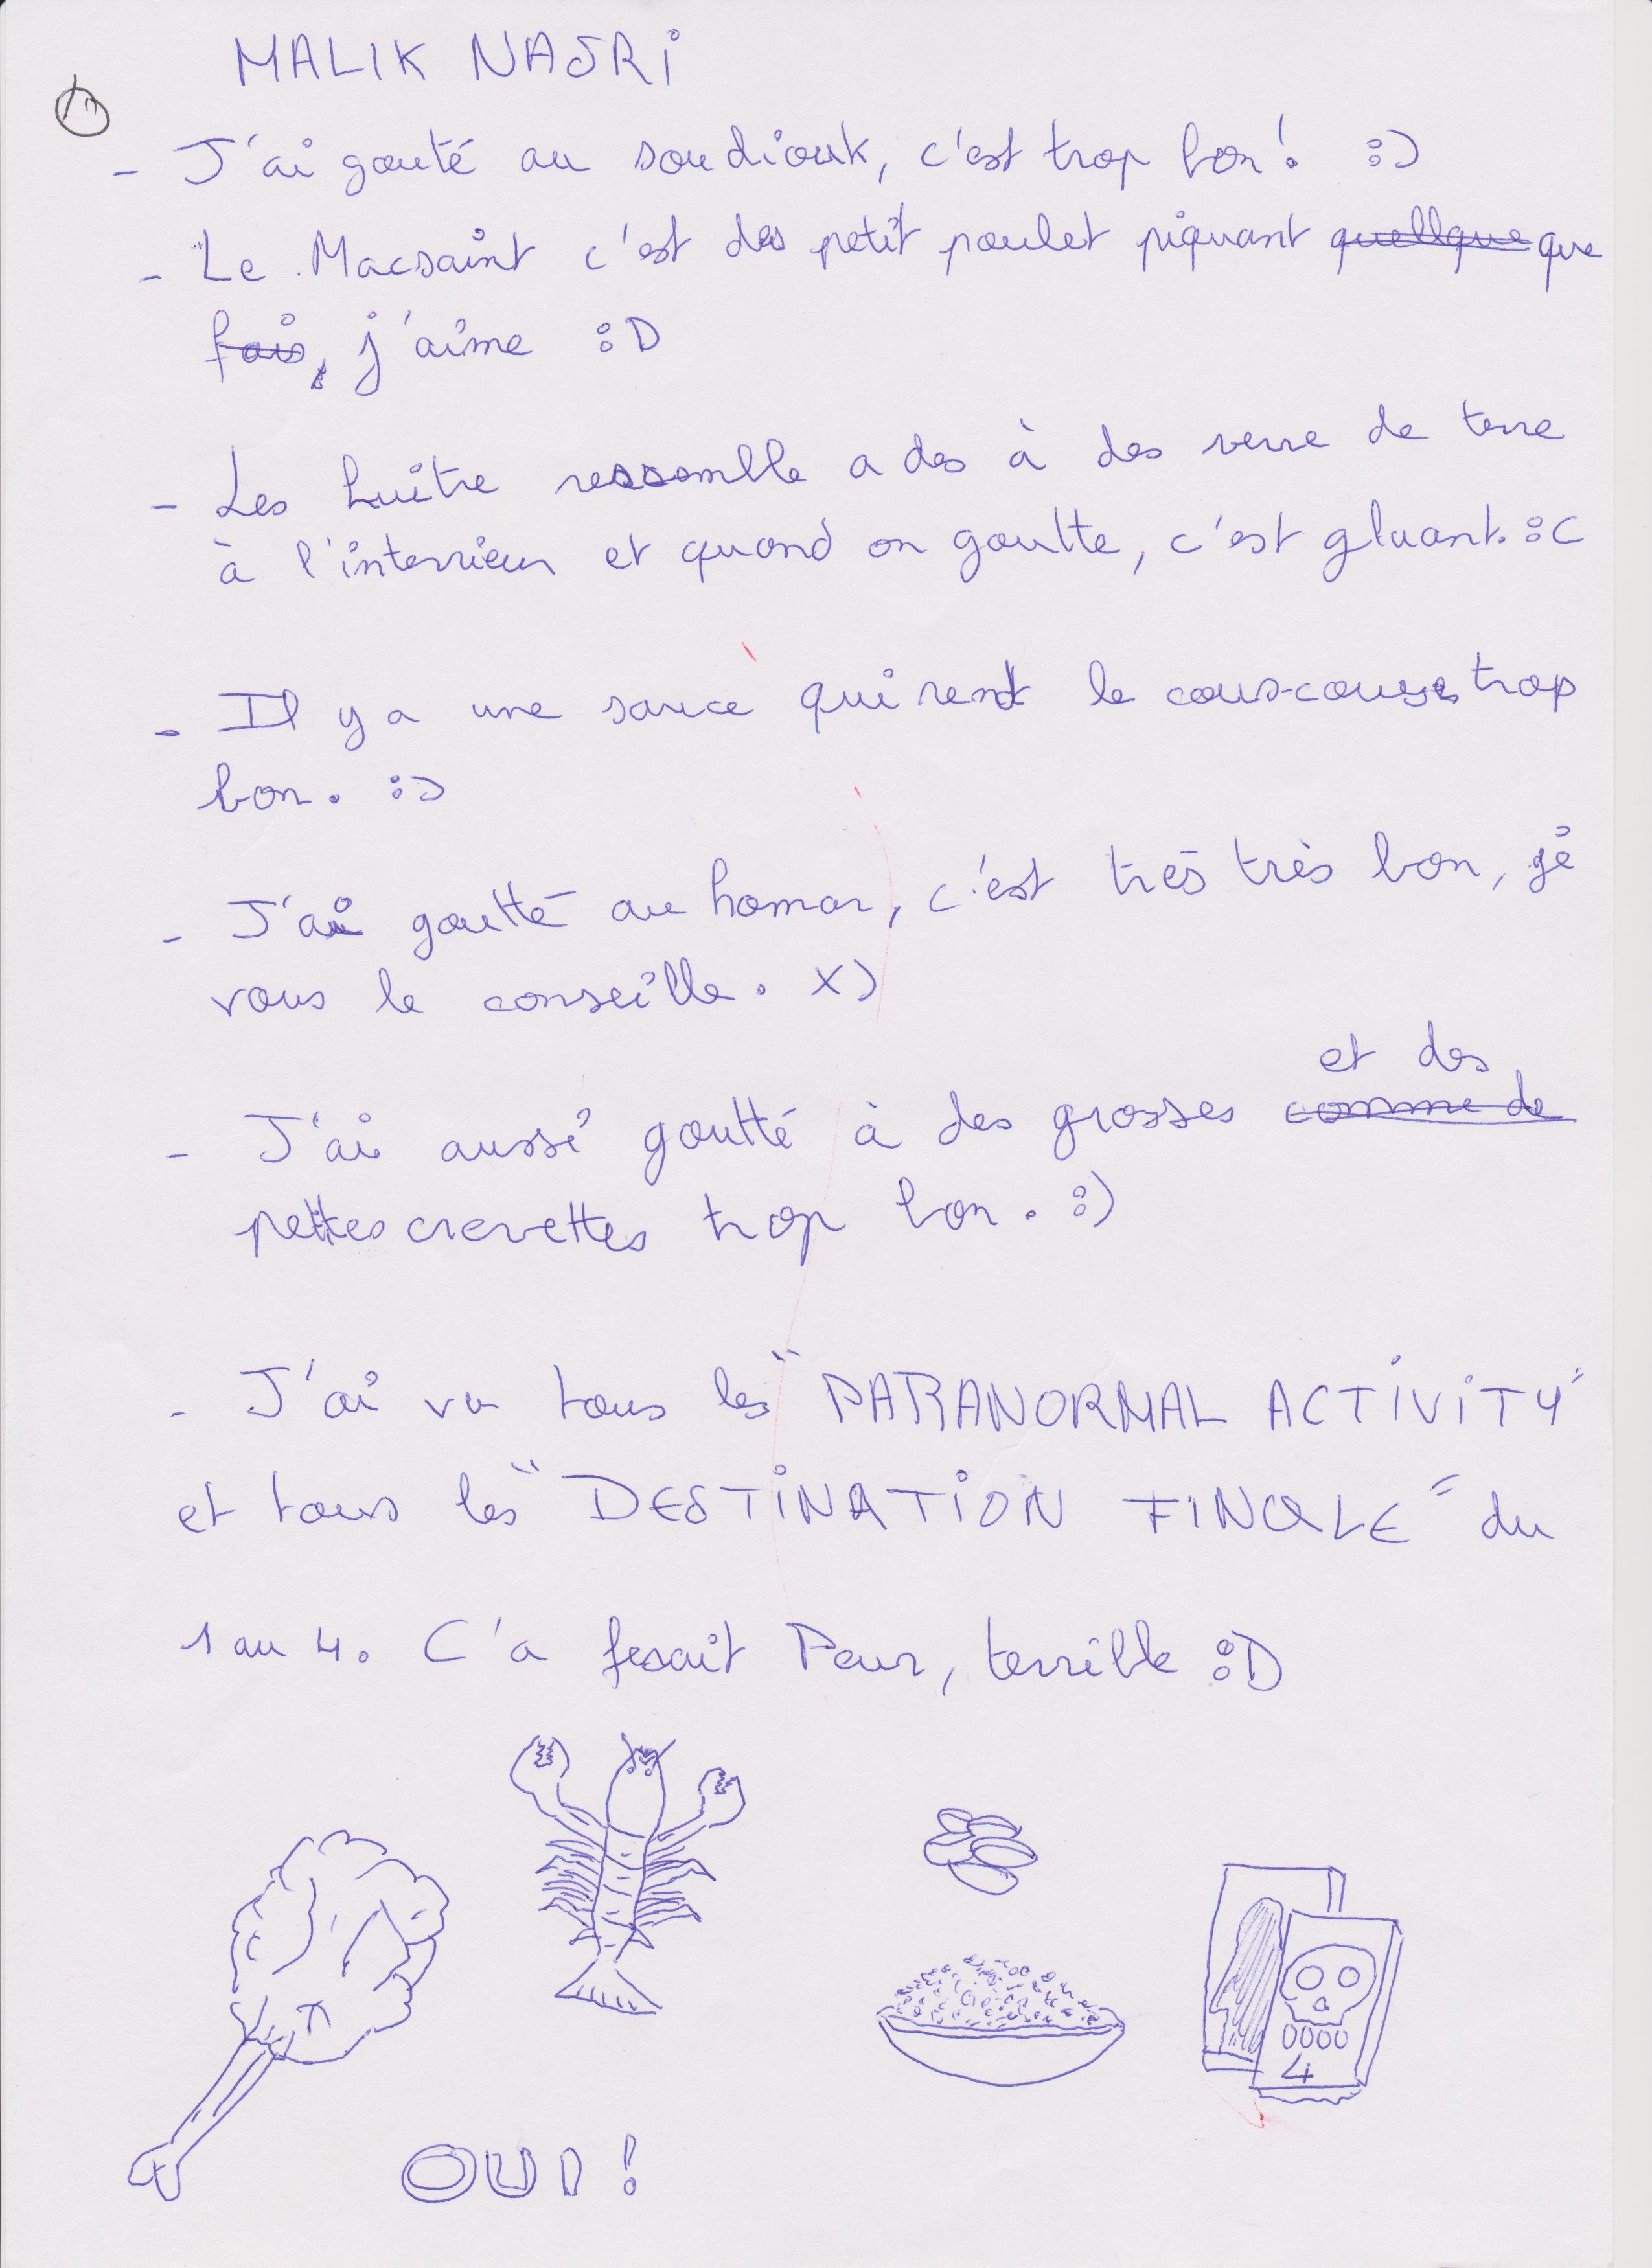 MALIK NAJRi
- J'ai gouté au soudiouk, c'est trop bon! :)
- Le Macsaint c'est des petit poulet piquant quellque que
fois, j'aime :D
- Les huître ressemble a des à des verre de terre
à l'interrieur et quand on goutte, c'est gluant. :C
- Il y a une sauce qui rend le cous-cous trop
bon. :)
- J'ai goutté au homar, c'est très très bon, je
vous le conseille. X)
et des
- J'ai aussi goutté à des grosses comme de
petites crevettes trop bon. :)
- J'ai vu tous les "PARANORMAL ACTIVITY"
et tous les "DESTINATION FINALE" du
1 au 4. C'a fesait Peur, terrible :D
4
OUI!